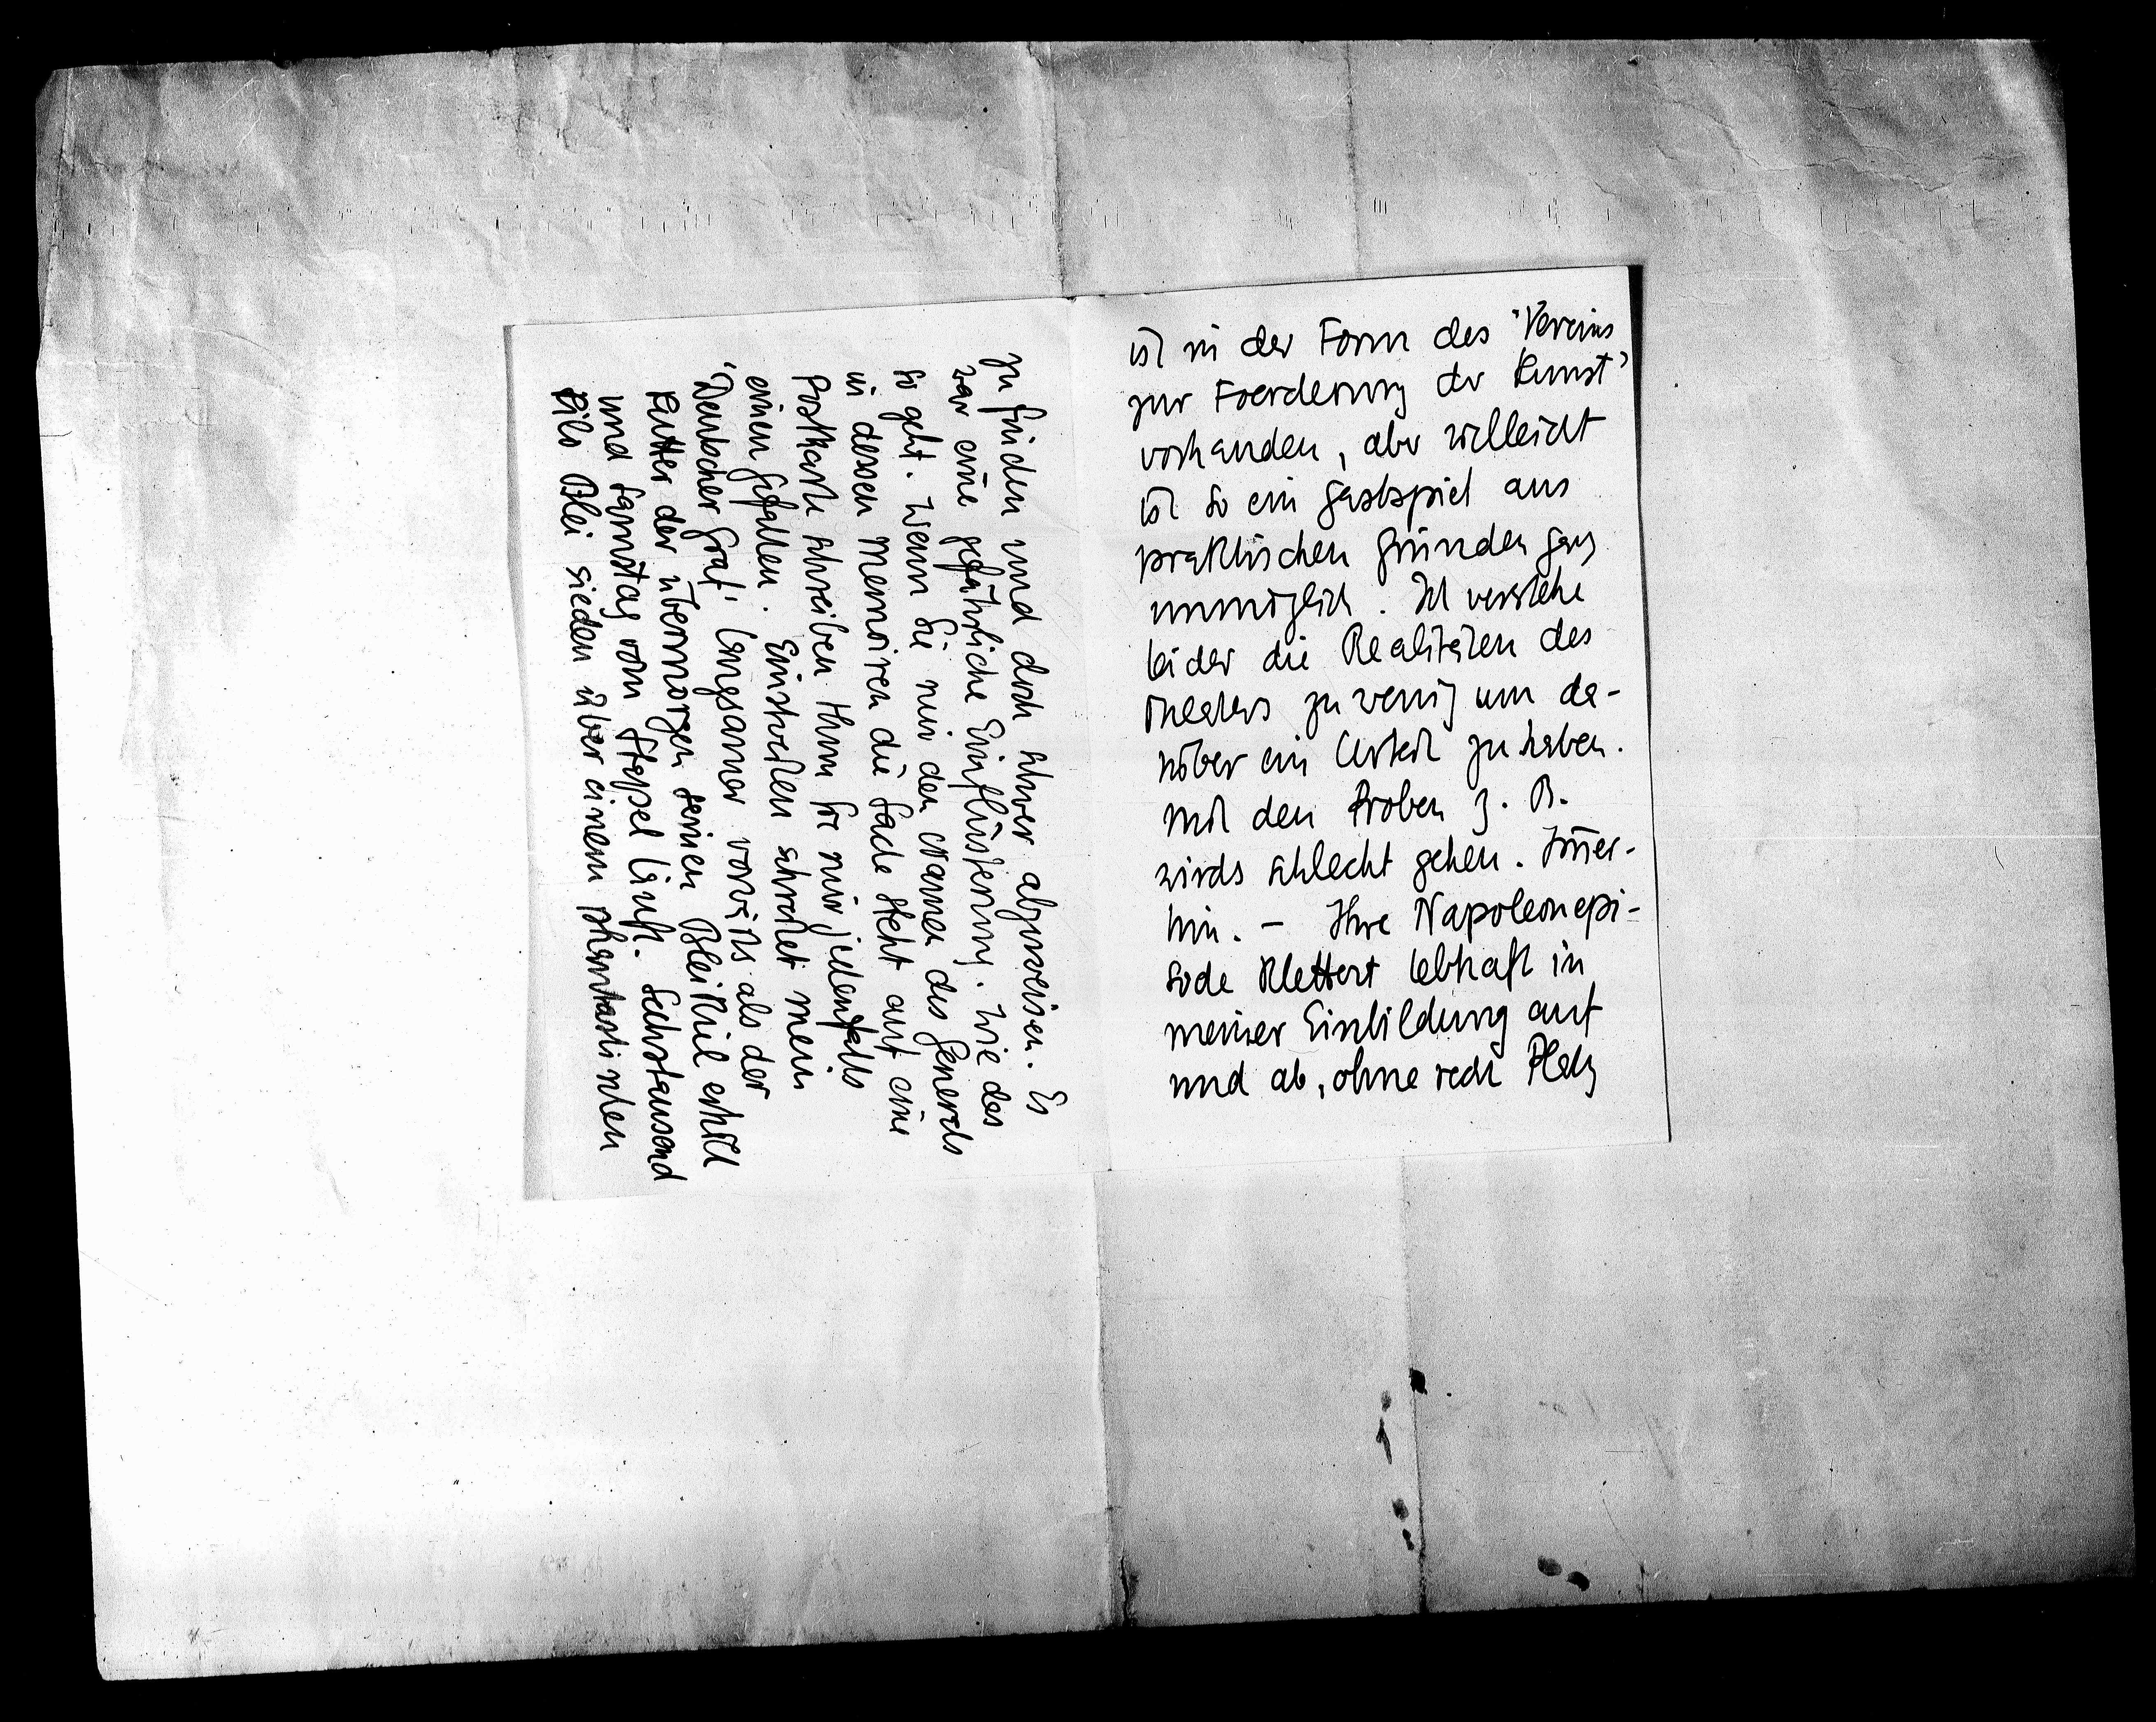 ist in der Form des "Vereins
zur Foerderung der Kunst"
vorhanden, aber vielleicht
ist so ein Gastspiel aus
praktischen Gründen ganz
unmöglich. Ich verstehe
leider die Realitäten des
Theaters zu wenig um da-
rüber ein Urteil zu haben.
Mit den Proben z. B.
wirds schlecht gehen. Im̅er-
hin. – Ihre Napoleonepi-
sode klettert lebhaft in
meiner Einbildung auf
und ab, ohne recht Platz
zu finden und doch schwer abzuweisen. Es
war eine gefährliche Einflüsterung. Wie das
so geht. Wenn Sie mir den Namen des Generals
in dessen Memoiren die Sache steht auf eine
Postkarte schreiben thun Sie mir jedenfalls
einen Gefallen. Einstweilen schreitet mein
"Deutscher Graf" langsamer vorwärts als der
Kutter der übermorgen seinen Bleikiel erhält
und Samstag vom Stapel läuft. Sechstausend
Kilo Blei sieden über einem phantastischen